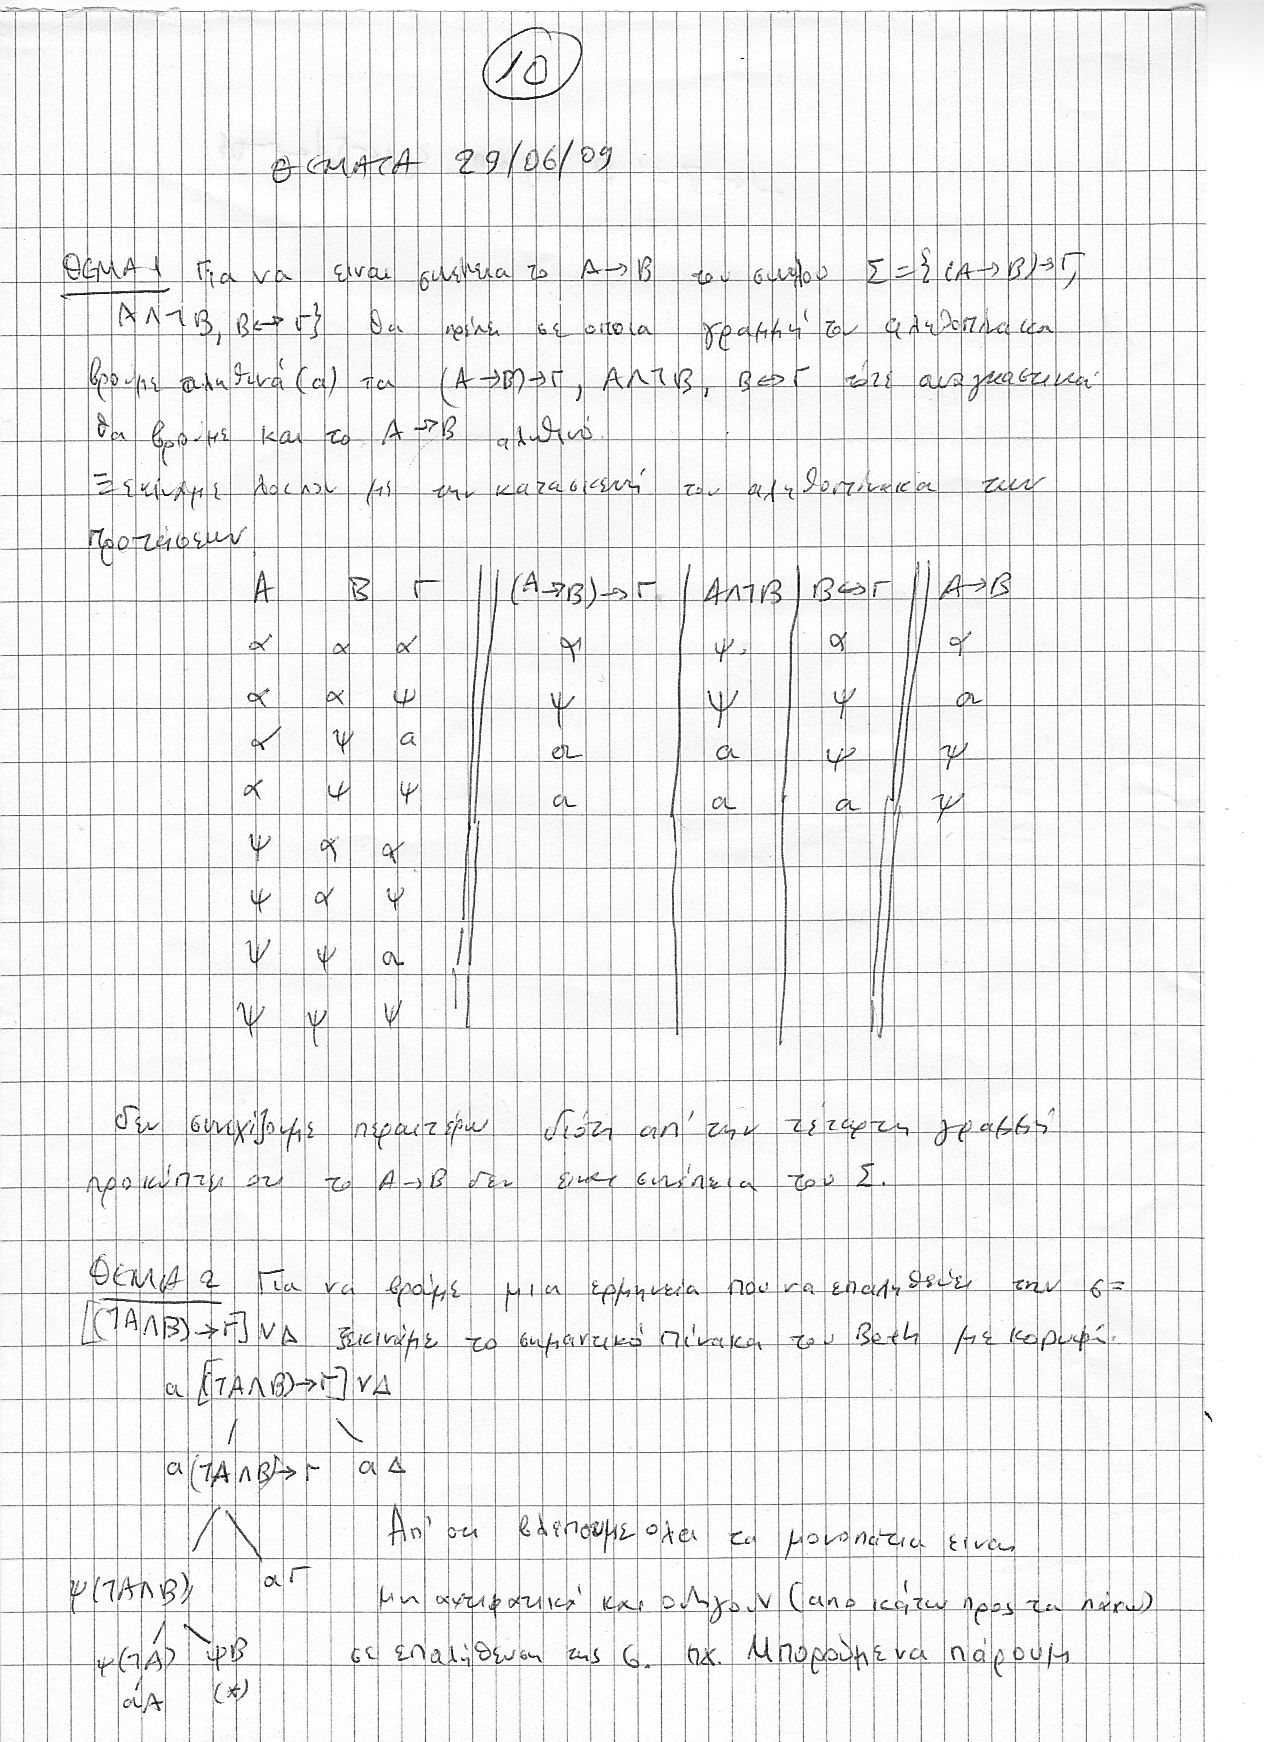 10
ΘΕΜΑΤΑ 29/06/09
ΘΕΜΑ 1 Για να ειναι συνέπεια το Α→Β του συνόλου Σ={(Α→Β)→Γ,
Α∧¬Β, Β↔Γ} θα πρέπει σε οποια γραμμή του αληθοπίνακα
βρουμε αληθινά (α) τα (Α→Β)→Γ, Α∧¬Β, Β↔Γ τότε αναγκαστικά
θα βρουμε και το Α→Β αληθινό.
Ξεκινάμε λοιπον με την κατασκευή του αληθοπίνακα των
προτάσεων
Α Β Γ (Α→Β)→Γ Α∧¬Β Β↔Γ Α→Β
α α α α ψ α α
α α ψ ψ ψ ψ α
α ψ α α α ψ ψ
α ψ ψ α α α ψ
ψ α α
ψ α ψ
ψ ψ α
ψ ψ ψ
δεν συνεχίζουμε περαιτέρω διότι απ' την τέταρτη γραμμή
προκύπτει οτι το Α→Β δεν ειναι συνέπεια του Σ.
ΘΕΜΑ 2 Για να βρουμε μια ερμηνεία που να επαληθεύει την σ=
[(¬Α∧Β)→Γ]∨Δ ξεκινάμε το σημαντικό πίνακα του Beth με κορυφή.
α [(¬Α∧Β)→Γ]∨Δ
α (¬Α∧Β)→Γ α Δ
Απ' οτι βλέπουμε ολα τα μονοπάτια ειναι
ψ(¬Α∧Β) α Γ μη αντιφατικά και οδηγουν (απο κάτω προς τα πάνω)
ψ(¬Α) ψΒ σε επαλήθευση της σ. πχ. Μπορούμε να πάρουμ
αΑ (*)